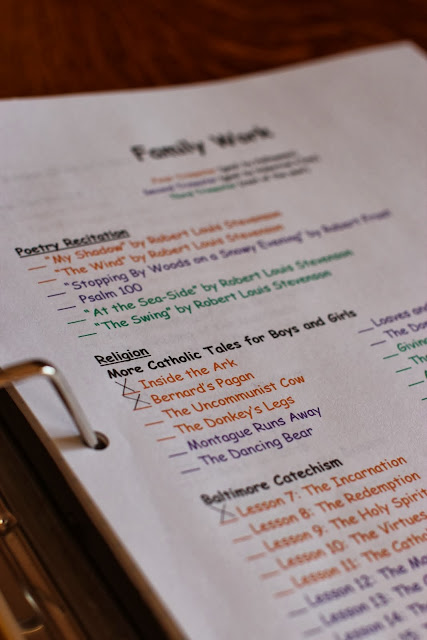 Family Work
First Trimester
Second Trimester
Third Trimester
Poetry Recitation
"My Shadow" by Robert Louis Stevenson
"The Wind" by Robert Louis Stevenson
"Stopping By Woods on a Snowy Evening" by Robert Frost
Psalm 100
"At the Sea-Side" by Robert Louis Stevenson
"The Swing" by Robert Louis Stevenson
Religion
More Catholic Tales for Boys and Girls
Inside the Ark
Bernard's Pagan
The Uncommunist Cow
The Donkey's Legs
Montague Runs Away
The Dancing Bear
Loaves and
The
Giving
The
Baltimore Catechism
Lesson 7: The Incarnation
Lesson 8: The Redemption
Lesson 9: The Holy
Lesson 10: The Virtues
Lesson 11: The
Lesson 12: The
Lesson 13: The
Lesson 14: The